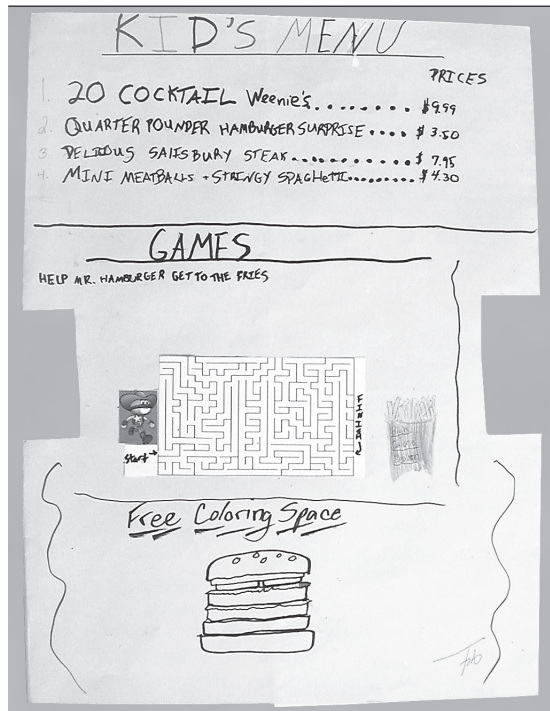 KID'S MENU
PRICES
1. 20 COCKTAIL Weenie's........ $9.99
2. QUARTER POUNDER HAMBURGER SURPRISE.... $3.50
3 DELICIOUS SALISBURY STEAK........... $7.95
4. MINI MEATBALLS + STRINGY SPAGHETTI......... $4.30
GAMES
HELP MR. HAMBURGER GET TO THE FRIES
FINISH
Start
Free Coloring Space